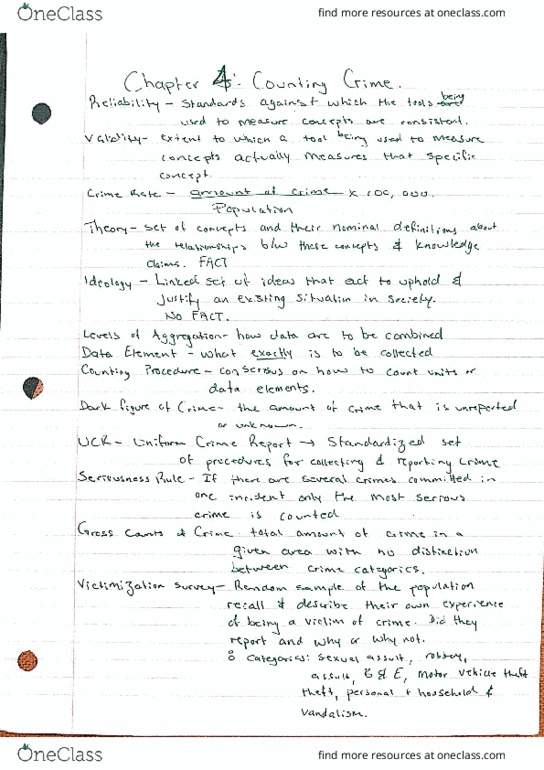 OneClass
find more resources at oneclass.com
Chapter 4: Counting Crime.
Reliability - Standards against which the tools being
used to measure concepts are consistent.
Validity - extent to which a tool being used to measure
concepts actually measures that specific
concept
Crime Rate - amount of crime x 100,000.
Population
Theory - set of concepts and their nominal definitions about
the relationships b/w these concepts & knowledge
claims. FACT
Ideology - Linked set of ideas that act to uphold &
justify an existing situation in society.
NO FACT.
Levels of Aggregation - how data are to be combined
Data Element - what exactly is to be collected
Counting Procedure - consensus on how to count units or
data elements.
Dark figure of Crime - the amount of crime that is unreported
or unknown.
UCR - Uniform Crime Report → Standardized set
of procedures for collecting & reporting crime
Seriousness Rule - If there are several crimes committed in
one incident only the most serious
crime is counted
Gross Counts of Crime total amount of crime in a
given area with no distinction
between crime categories.
Victimization survey - Random sample of the population
recall & describe their own experience
of being a victim of crime. Did they
report and why or why not.
Categories: sexual assult, robbery,
assult, B & E, motor vehicle theft
theft, personal + household &
vandalism.
OneClass
find more resources at oneclass.com